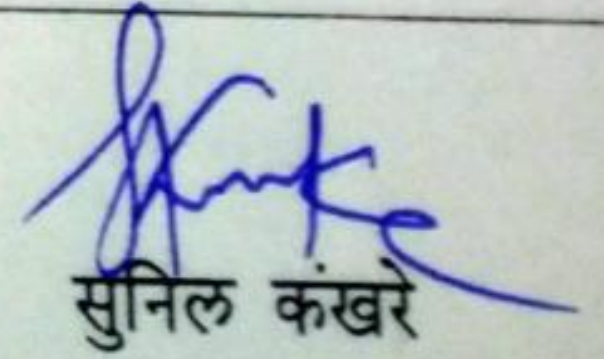 सुनिल कंखरे